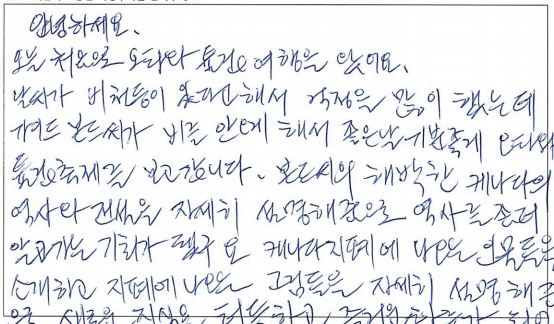 안녕하세요.
오늘 처음으로 오타와 튤립 여행을 왔어요.
날씨가 비 천둥이 온다고 해서 걱정을 많이 했는데
가이드 본드씨가 비를 안오게 해서 좋은날 기분좋게 오타와
튤립축제를 보고 갑니다. 본드씨의 해박한 케나다의
역사와 전설을 자세히 설명해줌으로 역사를 좀더
알고가는 기회가 됐구요 케나다지폐에 나오는 인물들을
소개하고 지폐에 나오는 그림들을 자세히 설명해주
새로운 지식을